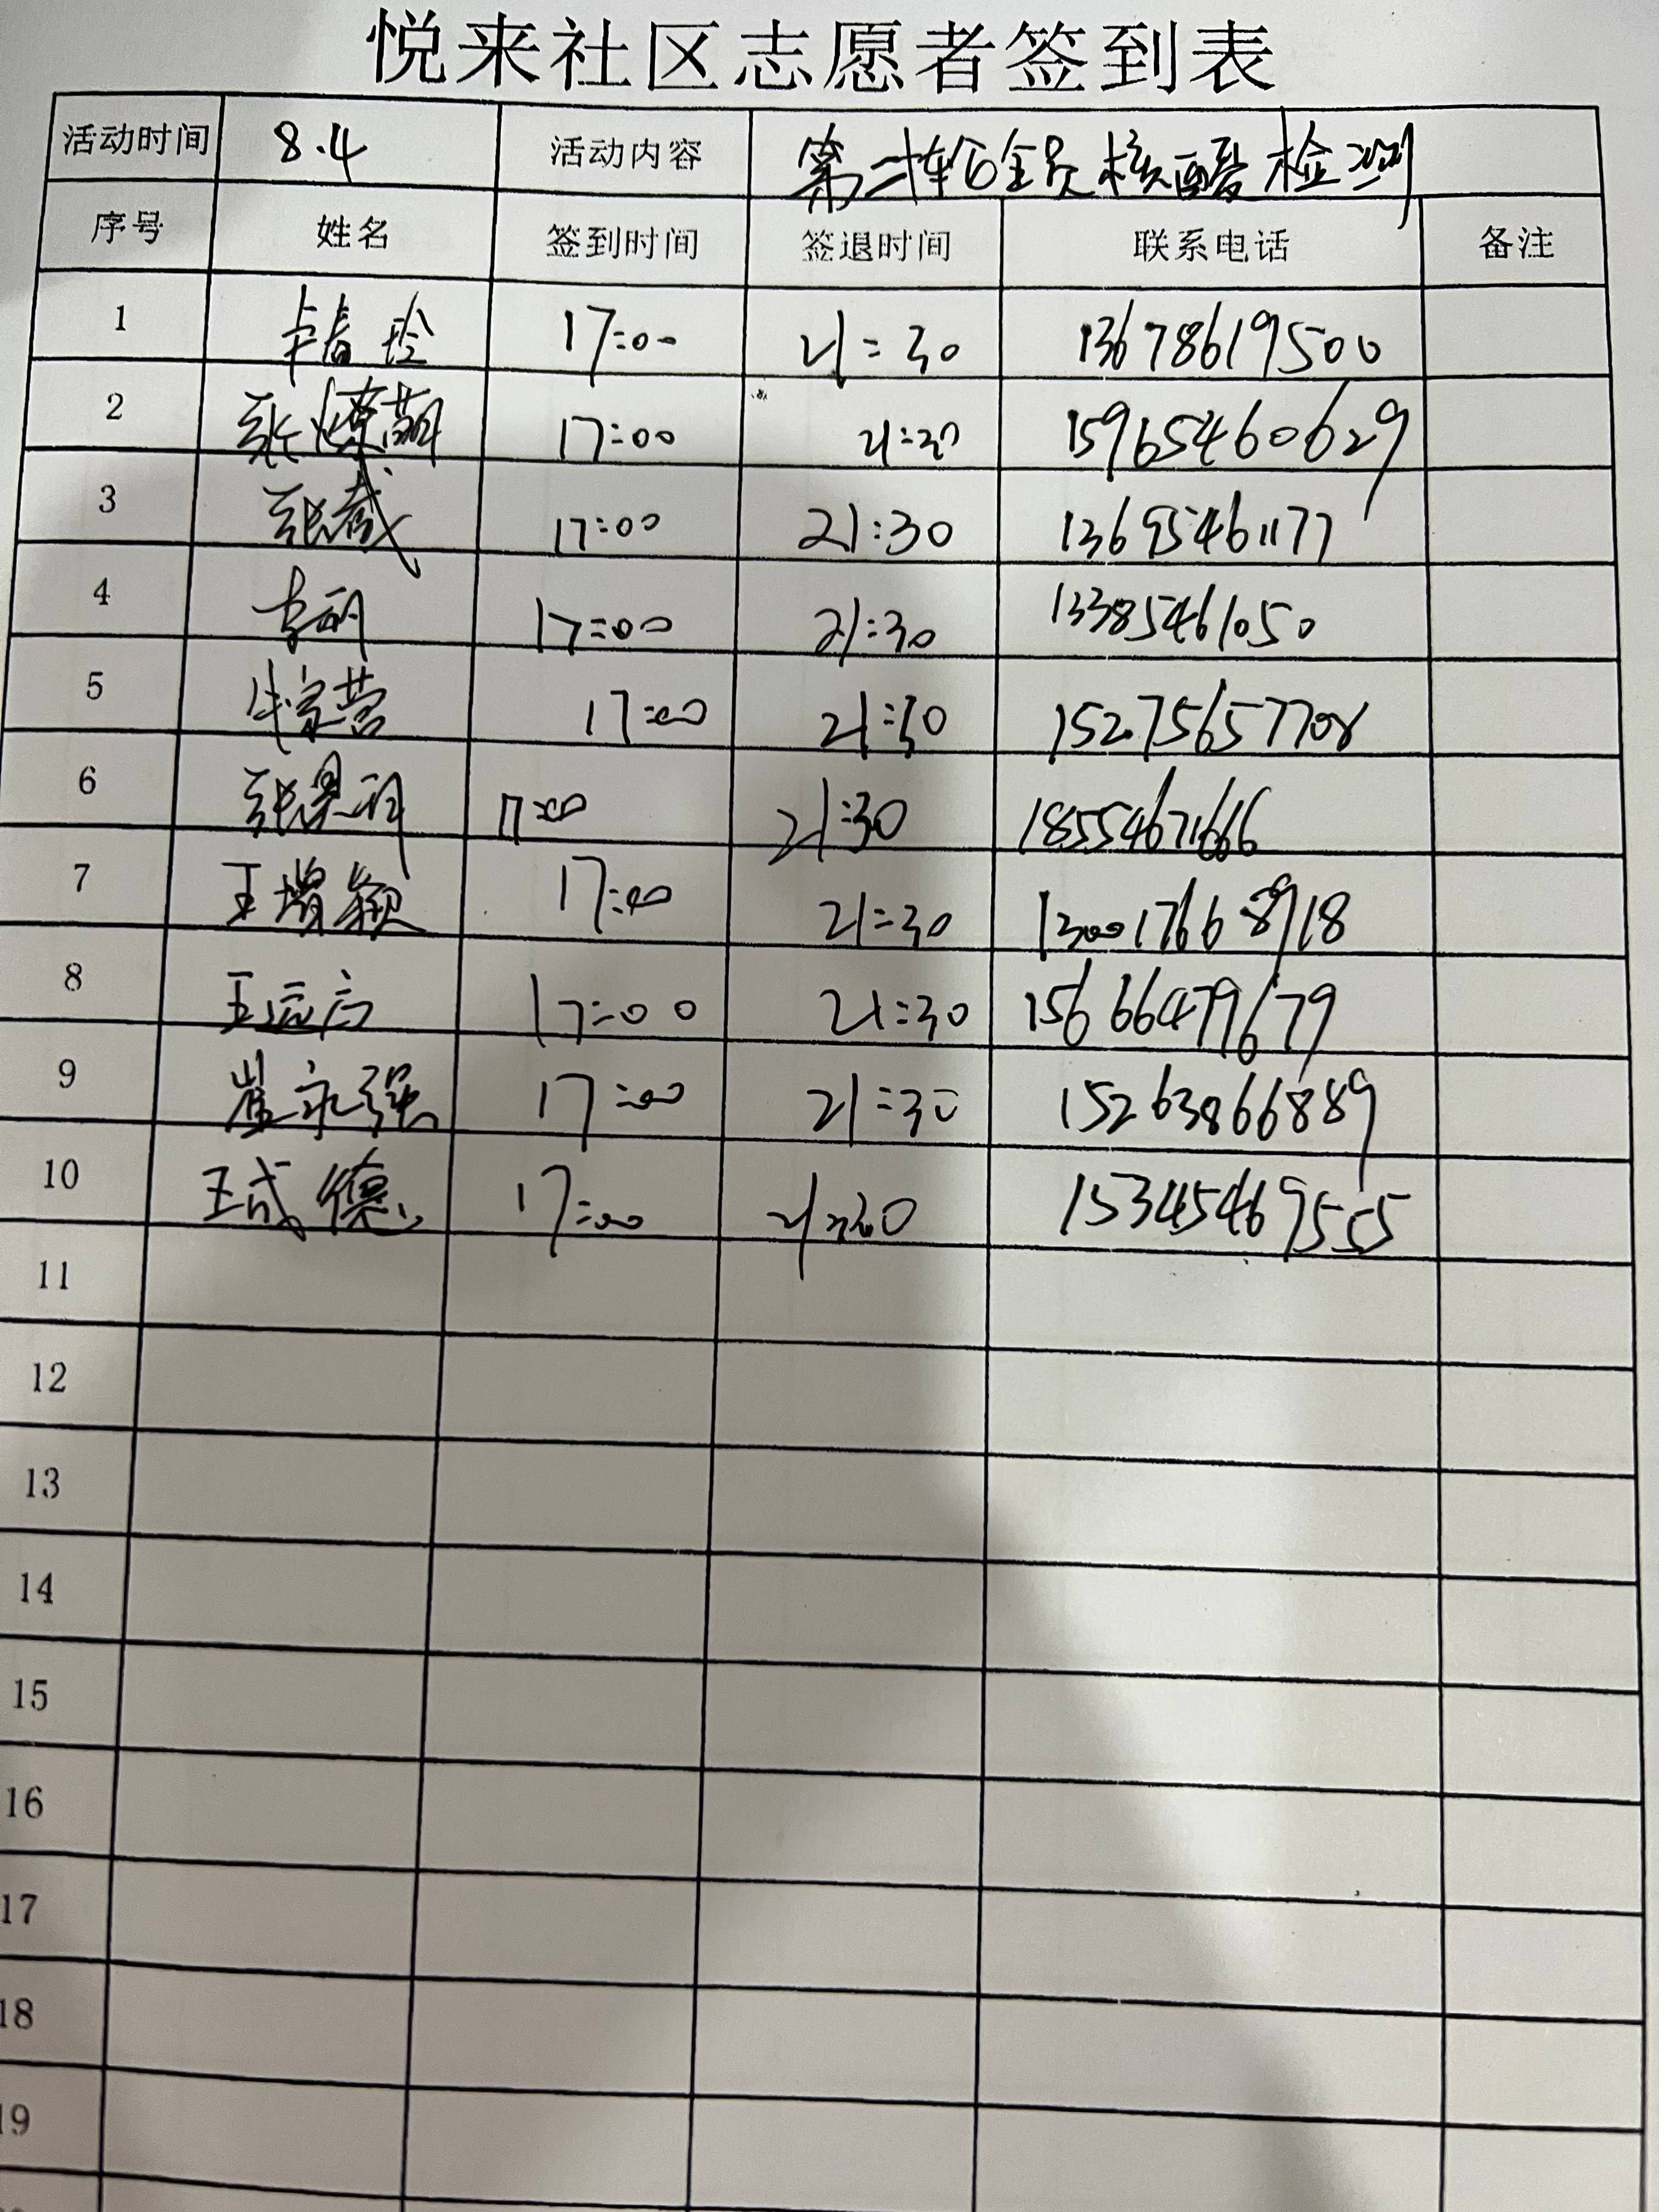 悦来社区志愿者签到表
活动时间 8.4 活动内容 第二轮全员核酸检测
序号 姓名 签到时间 签退时间 联系电话 备注
1 卞春玲 17:00 21:30 13678619500
2 张 萌 17:00 21:30 15965460629
3 张 17:00 21:30 13695461177
4 李 17:00 21:30 13385461050
5 牛家营 17:00 21:30 15275657708
6 张 17:00 21:30 18554671666
7 王增颖 17:00 21:30 1300176 8918
8 王 17:00 21:30 15666479679
9 崔永强 17:00 21:30 15263866889
10 王成德 17:00 21:30 15345469555
11
12
13
14
15
16
17
18
19